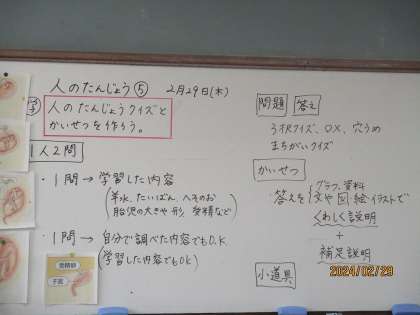 人のたんじょう⑤ 2月29日(木)
学 人のたんじょうクイズと
かいせつを作ろう。
1人2問
・1問→学習した内容
(羊水、たいばん、へそのお
胎児の大きさや形、受精など)
・1問→自分で調べた内容でもO.K
(学習した内容でもOK)
受精卵
子宮
問題 答え
3択クイズ、○×、穴うめ
まちがいクイズ
かいせつ
答えを グラフ、資料
文や図・絵・イラストで
くわしく説明
+
補足説明
小道具
2024/02/29